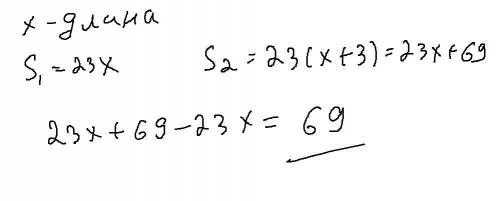 x - длина
S₁ = 23x
S₂ = 23(x+3) = 23x+69
23x + 69 - 23x = 69